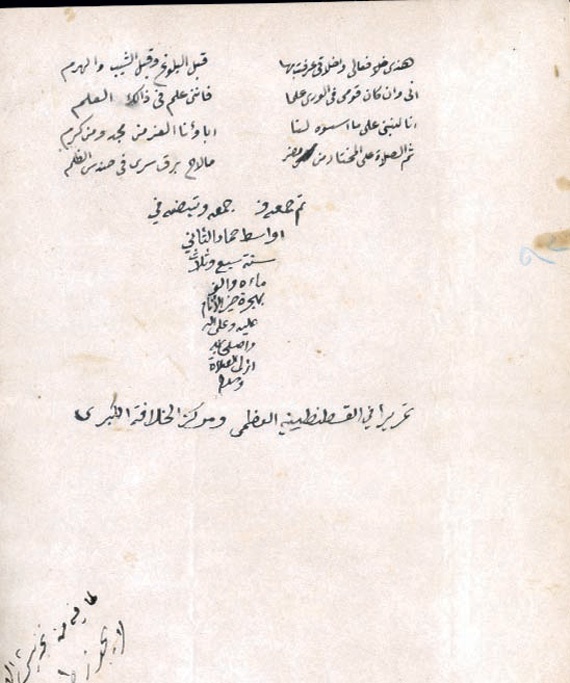 هذى خلا فعالى واخلاقى عرفت بها قبل البلوغ وقبل الشيب والهرم
انى وان كان قومى فى الورى علما فاننى علم فى ذالك العلم
انا لنبنى على ما اسسوه لنا اباؤنا الغر من مجد ومن كرم
ثم الصلاة على المختار من مضر مالاح برق سرى فى حندس الظلم
تم جمعه وتبيضه في
اواسط جماد الثاني
سنة سبع وثلاث
مائه والف
بهجرة خير الأنام
عليه وعلى اله
ازكى الصلاة
تحريرا في القسطنطينيه العظمى ومركز الخلافة الكبرى